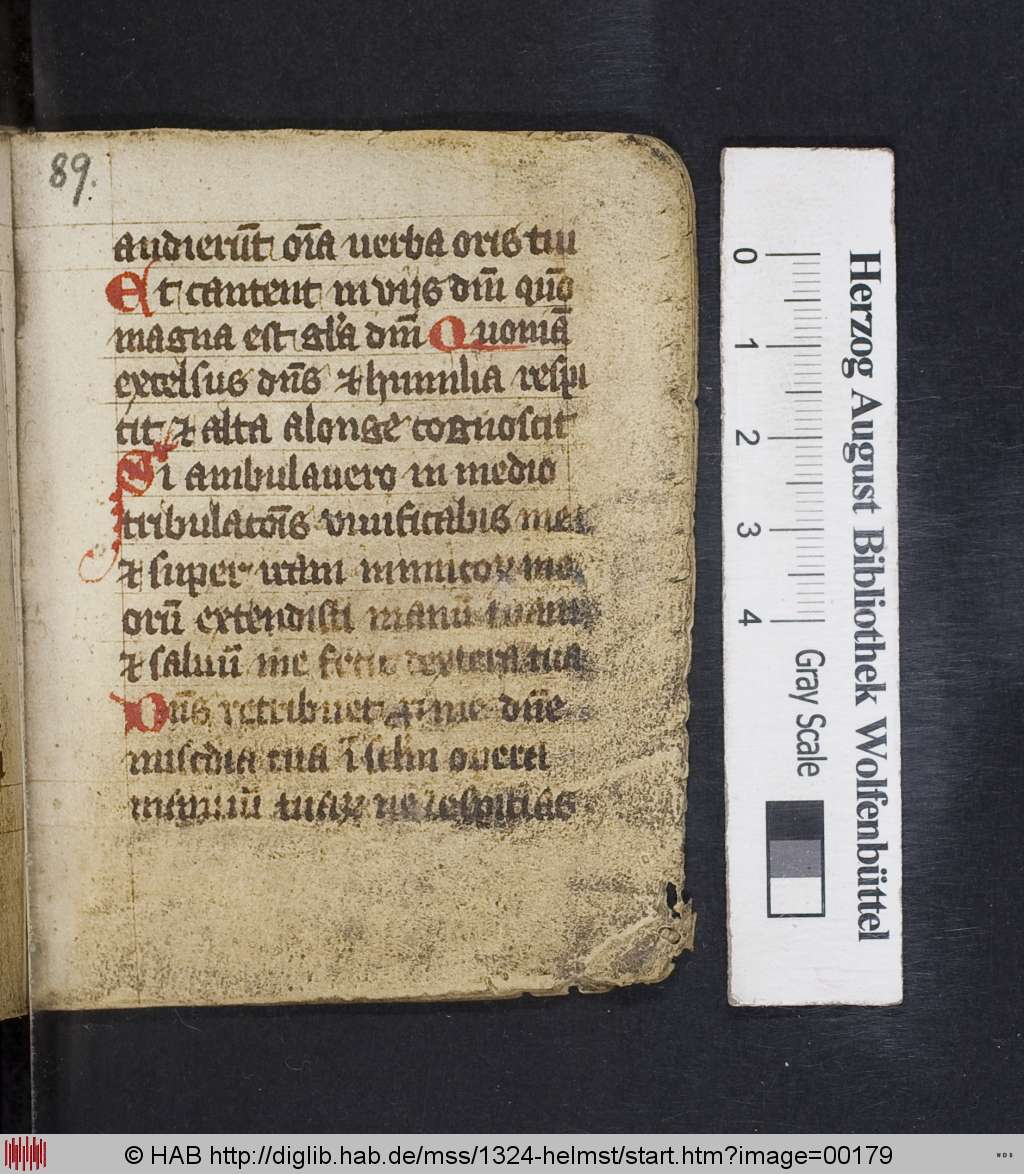 89.
audierūt oīa uerba oris tui
Et cantent in viis dn̄i qm̄o
magna est gl'a dn̄i Quoniā
excelsus dn̄s ⁊ humilia respi
cit ⁊ alta a longe cognoscit
Si ambulauero in medio
tribulatōis viuificabis me
⁊ super iram inimicoꝝ me
orū extendisti manū tuam
⁊ saluū me fecit dextera tua
Dn̄s retribuet me dn̄e
misc̄dia tua ī sclm opera
manuū tuaꝝ ne despicias
Herzog August Bibliothek Wolfenbüttel
0 1 2 3 4 Gray Scale
© HAB http://diglib.hab.de/mss/1324-helmst/start.htm?image=00179